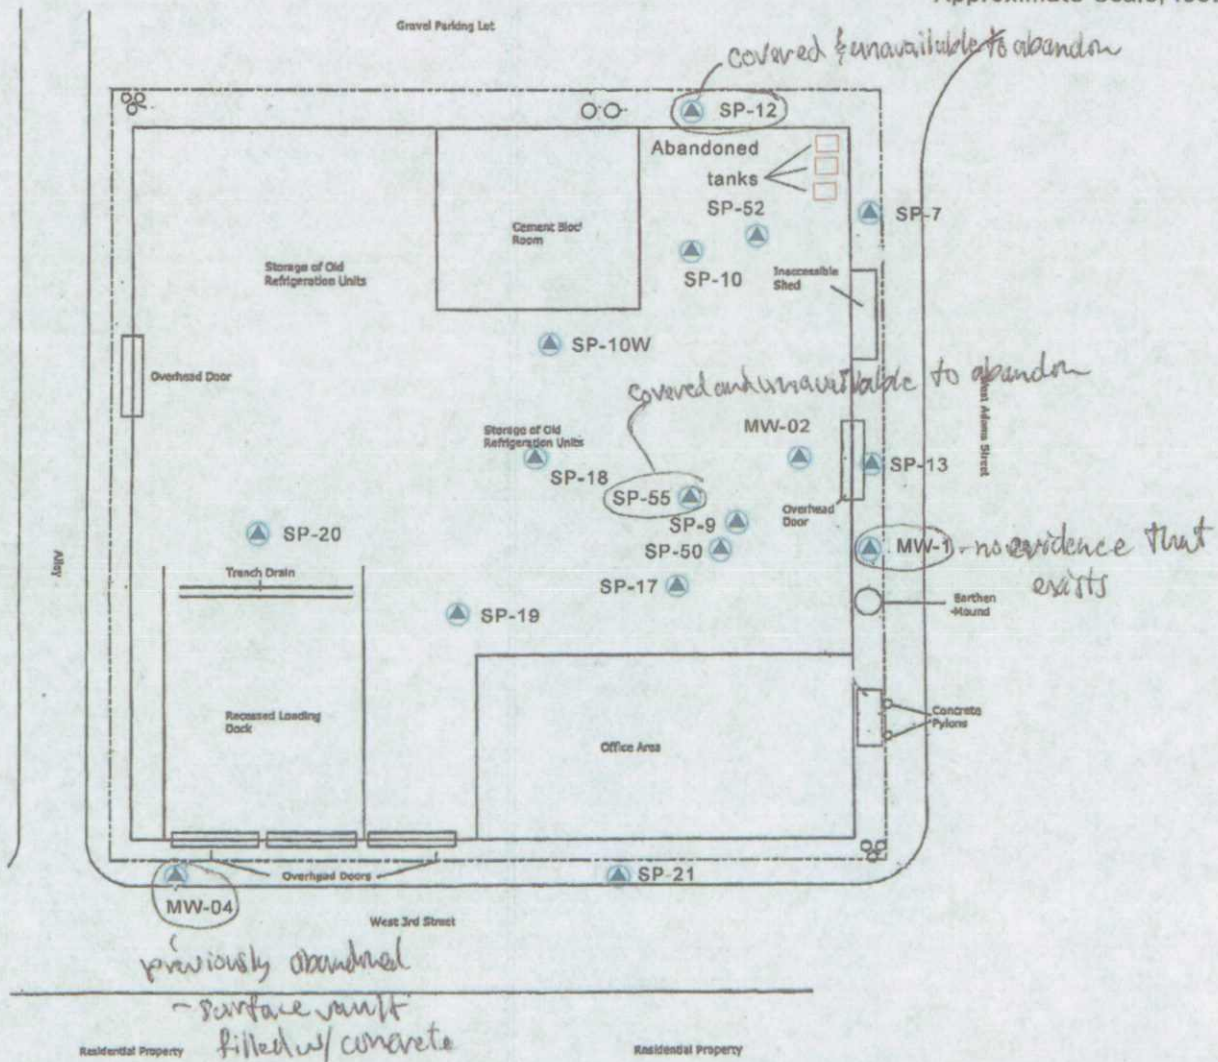 Gravel Parking Lot
covered & unavailable to abandon
SP-12
Abandoned
tanks
SP-52
SP-7
Cement Bloc
Room
SP-10
Storage of Old
Refrigeration Units
Inaccessible
Shed
SP-10W
Overhead Door
covered and unavailable to abandon
West Adams Street
MW-02
Storage of Old
Refrigeration Units
SP-13
SP-18
SP-55
Overhead
Door
SP-9
SP-20
SP-50
MW-1 - no evidence that
exists
Alley
Trench Drain
SP-17
Earthen
-Mound
SP-19
Recessed Loading
Dock
Concrete
Pylons
Office Area
Overhead Doors
SP-21
MW-04
West 3rd Street
previously abandoned
- surface vault
filled w/ concrete
Residential Property
Residential Property